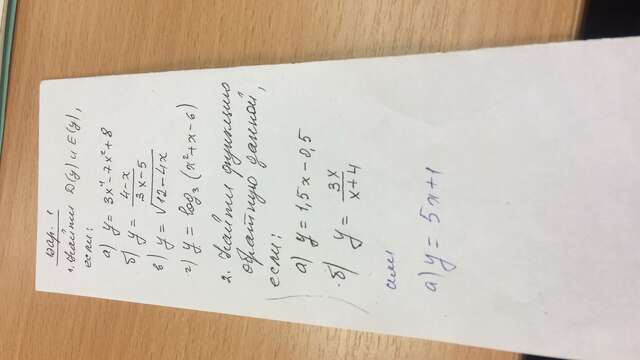 Вар. 1
1. Найти D(y) и E(y),
если:
а) y = 3x⁴-7x²+8
б) y = \frac{4-x}{3x-5}
в) y = √(12-4x)
г) y = log₃ (x²+x-6)
2. Найти функцию
обратную данной,
если:
а) y = 1,5x-0,5
б) y = \frac{3x}{x+4}
или
а) y = 5x+1